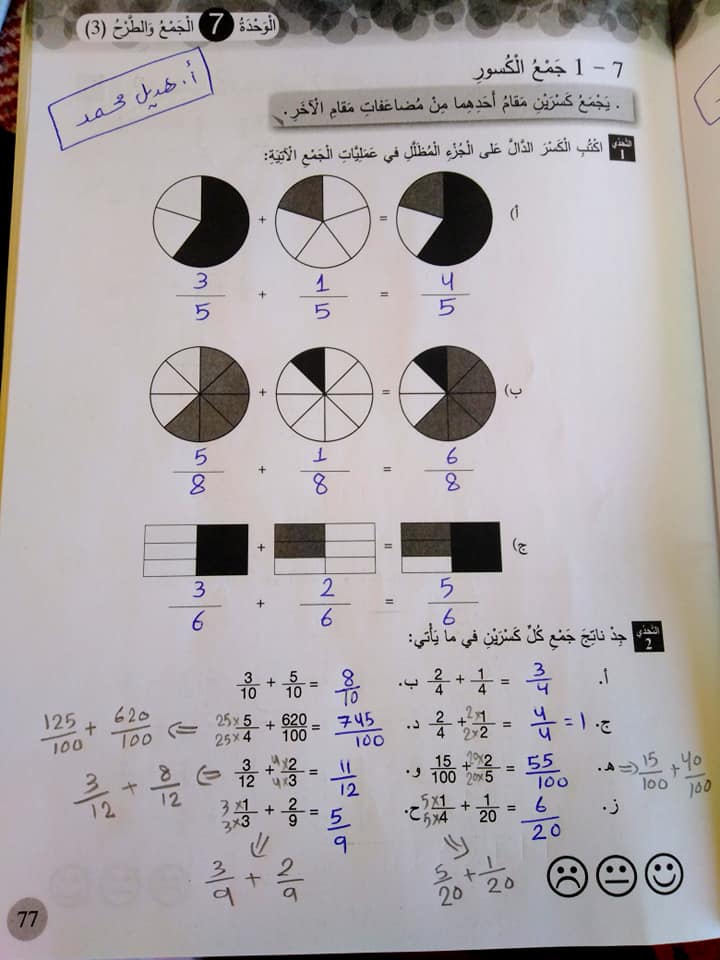 الْوَحْدَةُ 7 الْجَمْعُ وَالطَّرْحُ (3)
أ. هديل محمد
7 – 1 جَمْعُ الْكُسورِ
. يَجْمَعُ كَسْرَيْنِ مَقامُ أَحَدِهِما مِنْ مُضاعَفاتِ مَقامِ الْآخَرِ.
التَّحَدّي 1 اكْتُبِ الْكَسْرَ الدّالَّ عَلى الْجُزْءِ الْمُظَلَّلِ في عَمَلِيّاتِ الْجَمْعِ الْآتِيَةِ:
أ) + =
3/5 + 1/5 = 4/5
ب) + =
5/8 + 1/8 = 6/8
ج) + =
3/6 + 2/6 = 5/6
التَّحَدّي 2 جِدْ ناتِجَ جَمْعِ كُلِّ كَسْرَيْنِ في ما يَأْتي:
أ. 2/4 + 1/4 = 3/4 ب. 3/10 + 5/10 = 8/10
ج. 2/4 + 2×1/2×2 = 4/4 = 1 د. 25×5/25×4 + 620/100 = 745/100 ⇐ 125/100 + 620/100
هـ. 15/100 + 20×2/20×5 = 55/100 ⇒ 15/100 + 40/100 و. 3/12 + 4×2/4×3 = 11/12 ⇐ 3/12 + 8/12
ز. 5×1/5×4 + 1/20 = 6/20 ح. 3×1/3×3 + 2/9 = 5/9
5/20 + 1/20 3/9 + 2/9
77